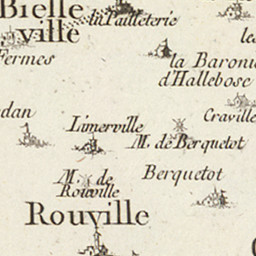 Bielle
ville
la Pailleterie
Fermes
la Baronie
d'Hallebosc
Craville
Limerville
M. de Berquetot
Berquetot
M. de
Rouville
Rouville